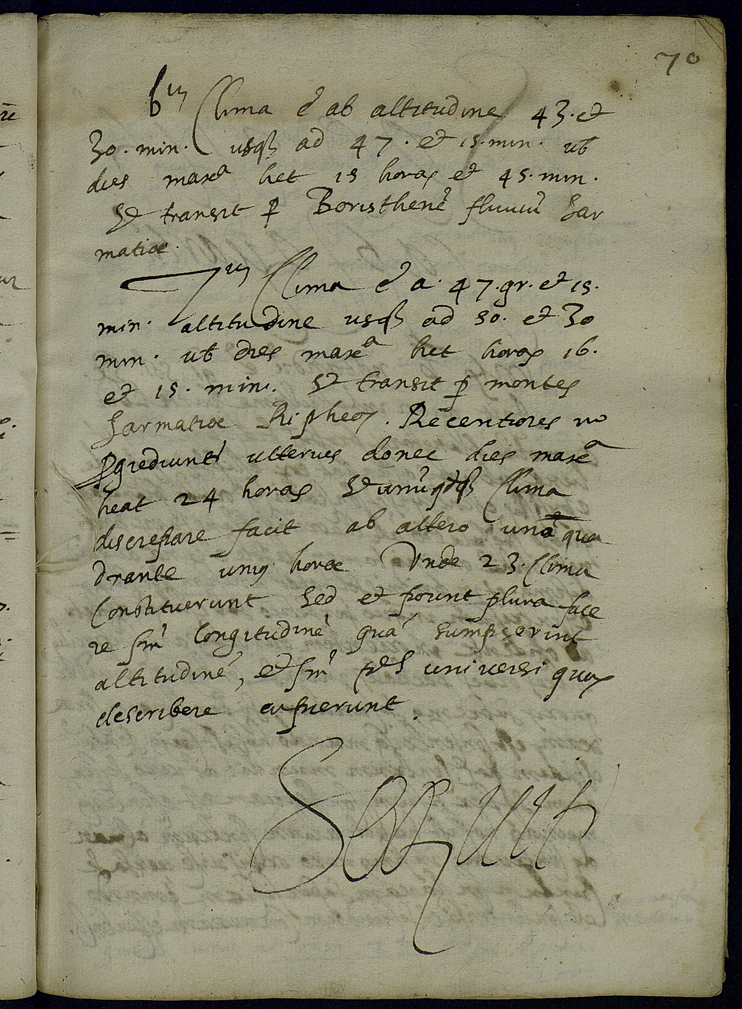 70
6ᵘᵐ Clima ē ab altitudine 43. et
30. min. usq₃ ad 47. et 15. min. ubi
dies maxᵃ het 15 horas et 45. min.
Et transit p Boristhenē fluviū Sar
matiæ.
7ᵘᵐ Clima ē a 47. gr. et 15.
min. altitudine usq₃ ad 50. et 30
min. ubi dies maxᵃ het horas 16.
et 15. min. Et transit p montes
Sarmatiæ Ripheos. Recentiores vo
pgrediunt ulterius donec dies maxᵃ
heat 24 horas Et unūqdq₃ Clima
discrepare facit ab altero unā qua
drante unius horæ Unde 23. Clima
Constituerunt Sed et pount plura face
re sm̄ longitudinē quā sumpserint
altitudinē, et sm̄ universi quas
describere
Sequit